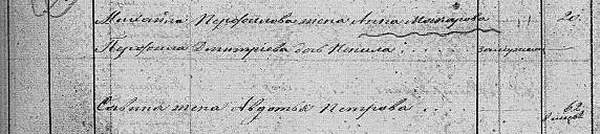 Михайла Перфилова жена Анна Макарова 20.
Перфила Дмитриева дочь замужем
Савина жена Авдотья Петрова 62